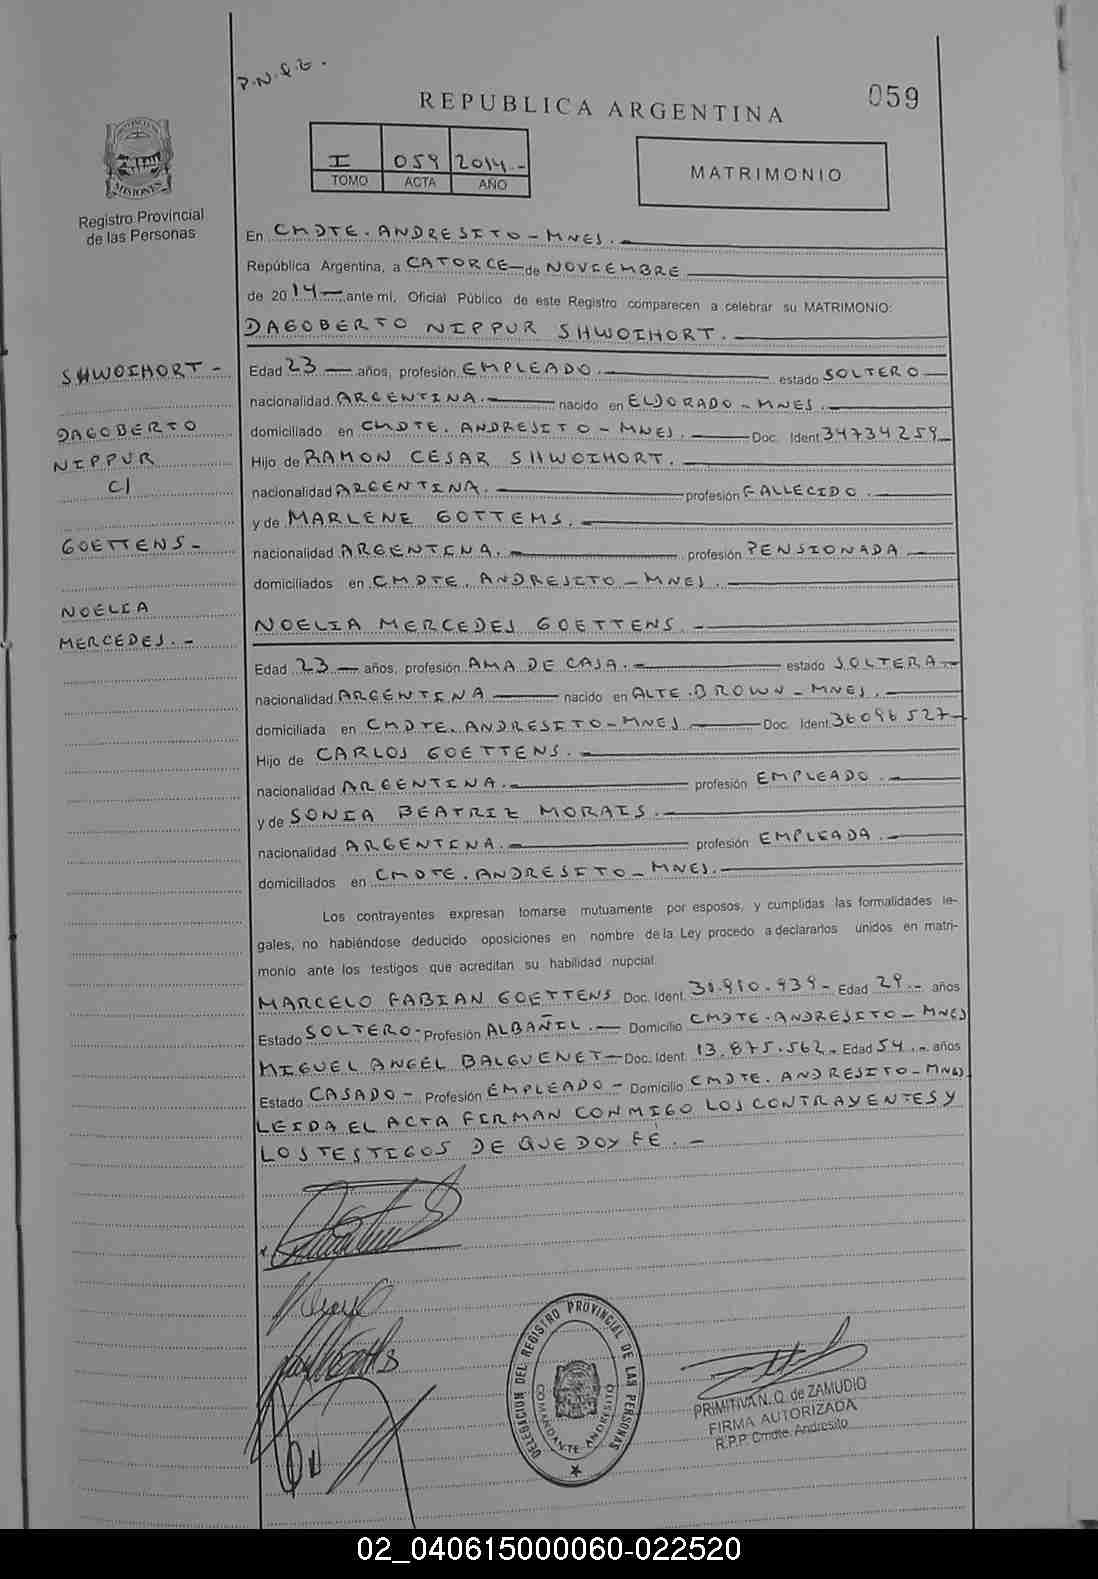 P.N.Q.Z.
059
REPUBLICA ARGENTINA
I 059 2014.-
TOMO ACTA AÑO
MATRIMONIO
MISIONES
Registro Provincial
de las Personas
En CMDTE. ANDRESITO - MNES.
República Argentina, a CATORCE de NOVIEMBRE
de 2014 ante mí, Oficial Público de este Registro comparecen a celebrar su MATRIMONIO:
DAGOBERTO NIPPUR SHWOIHORT.
SHWOIHORT -
DAGOBERTO
NIPPUR
C/
GOETTENS -
NOELIA
MERCEDES. -
Edad 23 años, profesión EMPLEADO. estado SOLTERO
nacionalidad ARGENTINA. nacido en ELDORADO - MNES.
domiciliado en CMDTE. ANDRESITO - MNES. Doc. Ident 34734259
Hijo de RAMON CESAR SHWOIHORT.
nacionalidad ARGENTINA. profesión FALLECIDO.
y de MARLENE GOTTEMS.
nacionalidad ARGENTINA. profesión PENSIONADA
domiciliados en CMDTE. ANDRESITO - MNES.
NOELIA MERCEDES GOETTENS. -
Edad 23 años, profesión AMA DE CASA. estado SOLTERA
nacionalidad ARGENTINA nacido en ALTE. BROWN - MNES.
domiciliada en CMDTE. ANDRESITO - MNES Doc. Ident 36096527
Hijo de CARLOS GOETTENS.
nacionalidad ARGENTINA. profesión EMPLEADO.
y de SONIA BEATRIZ MORAIS.
nacionalidad ARGENTINA. profesión EMPLEADA.
domiciliados en CMDTE. ANDRESITO - MNES.
Los contrayentes expresan tomarse mutuamente por esposos, y cumplidas las formalidades le-
gales, no habiéndose deducido oposiciones en nombre de la Ley procedo a declararlos unidos en matri-
monio ante los testigos que acreditan su habilidad nupcial
MARCELO FABIAN GOETTENS Doc. Ident. 30.910.939 - Edad 29.- años
Estado SOLTERO - Profesión ALBAÑIL. - Domicilio CMDTE. ANDRESITO - MNES
MIGUEL ANGEL BALGUENET - Doc. Ident. 13.875.562 - Edad 54.- años
Estado CASADO - Profesión EMPLEADO - Domicilio CMDTE. ANDRESITO - MNES
LEIDA EL ACTA FIRMAN CONMIGO LOS CONTRAYENTES Y
LOS TESTIGOS DE QUE DOY FÉ. -
DELEGACION DEL REGISTRO PROVINCIAL DE LAS PERSONAS
COMANDANTE ANDRESITO
PRIMITIVA N. Q. de ZAMUDIO
FIRMA AUTORIZADA
R.P.P. Cmdte. Andresito
02_040615000060-022520